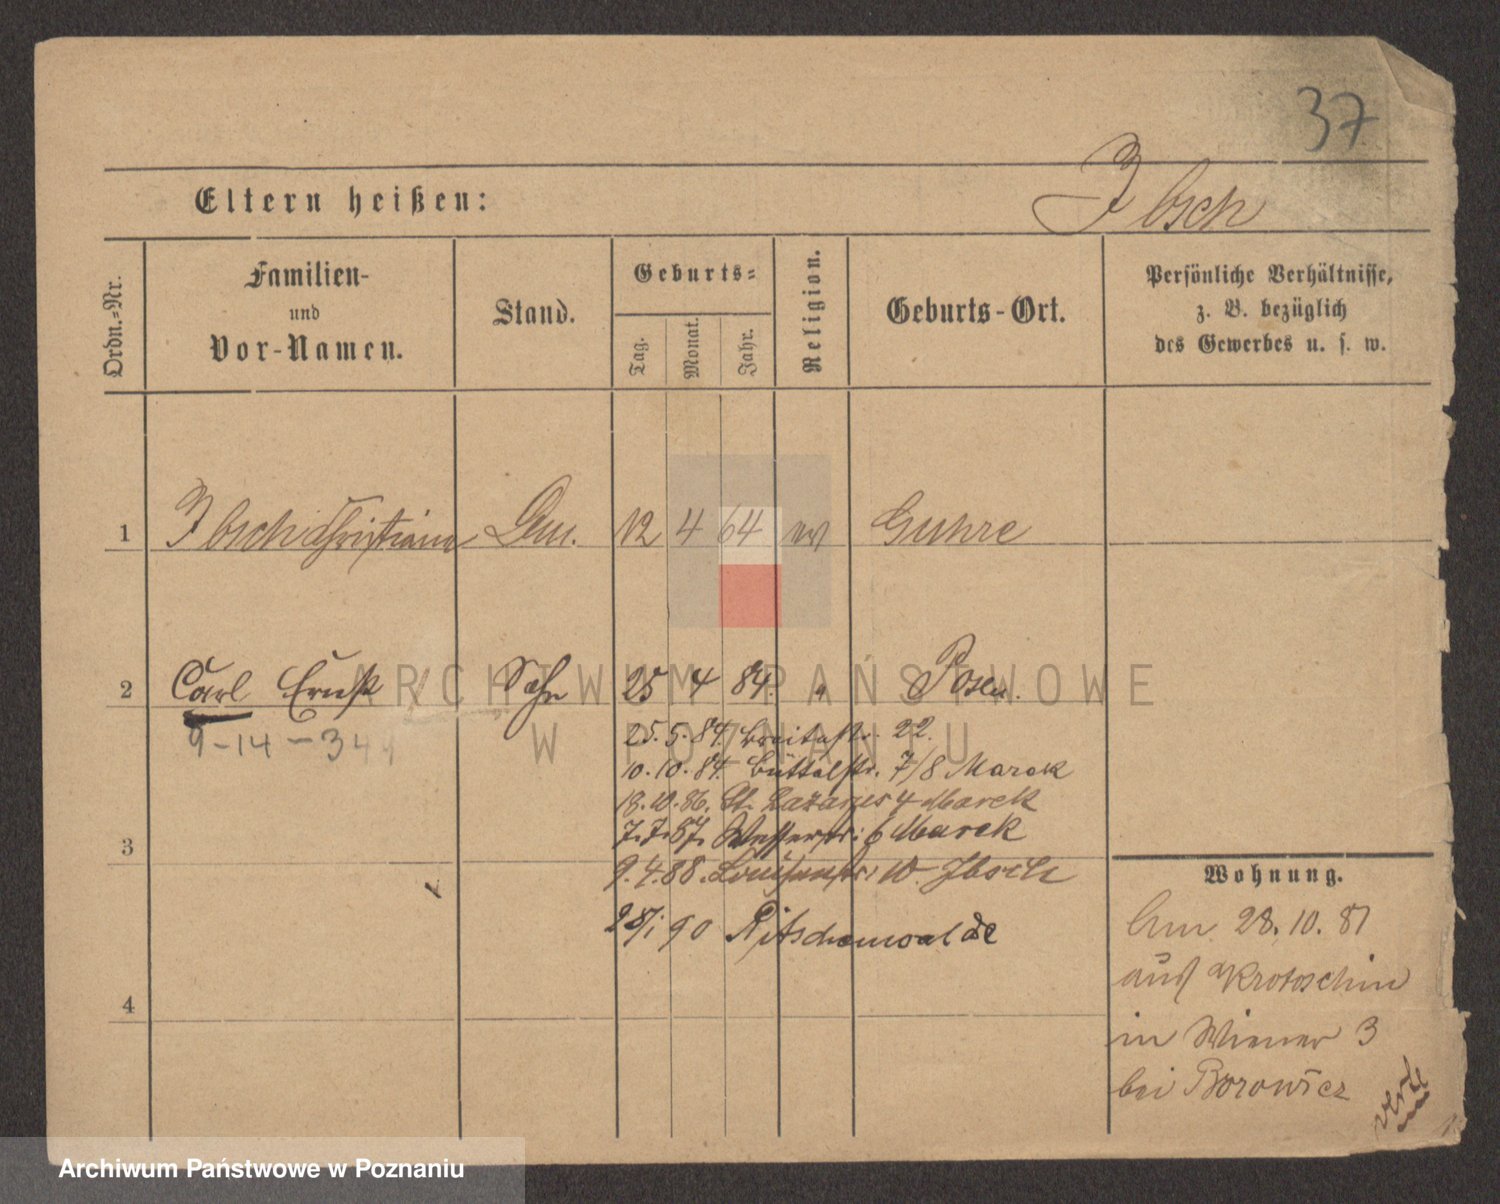 37
Eltern heißen:
Ibsch
Ordn.-Nr.
Familien-
und
Vor-Namen.
Stand.
Geburts-
Tag.
Monat.
Jahr.
Religion.
Geburts-Ort.
Persönliche Verhältnisse,
z. B. bezüglich
des Gewerbes u. s. w.
1 Ibsch Christiane 12 4 64 Guhre
2 Carl Ernst Sohn 25 4 84. " Posen.
9-14-344
25.5.84 Breitestr. 22.
10.10.84. Büttelstr. 7/8 Marek
18.10.86. St. Lazarus 4 Marek
3 7.7.87. Wasserstr: 6 Marek
9.4.88. Louisenstr: 10. Ibsch
28/1 90 Ritschenwalde
4
Wohnung.
Am 28.10.81
aus Krotoschin
in Wiener 3
bei Borowicz
ARCHIWUM PAŃSTWOWE
W POZNANIU
Archiwum Państwowe w Poznaniu